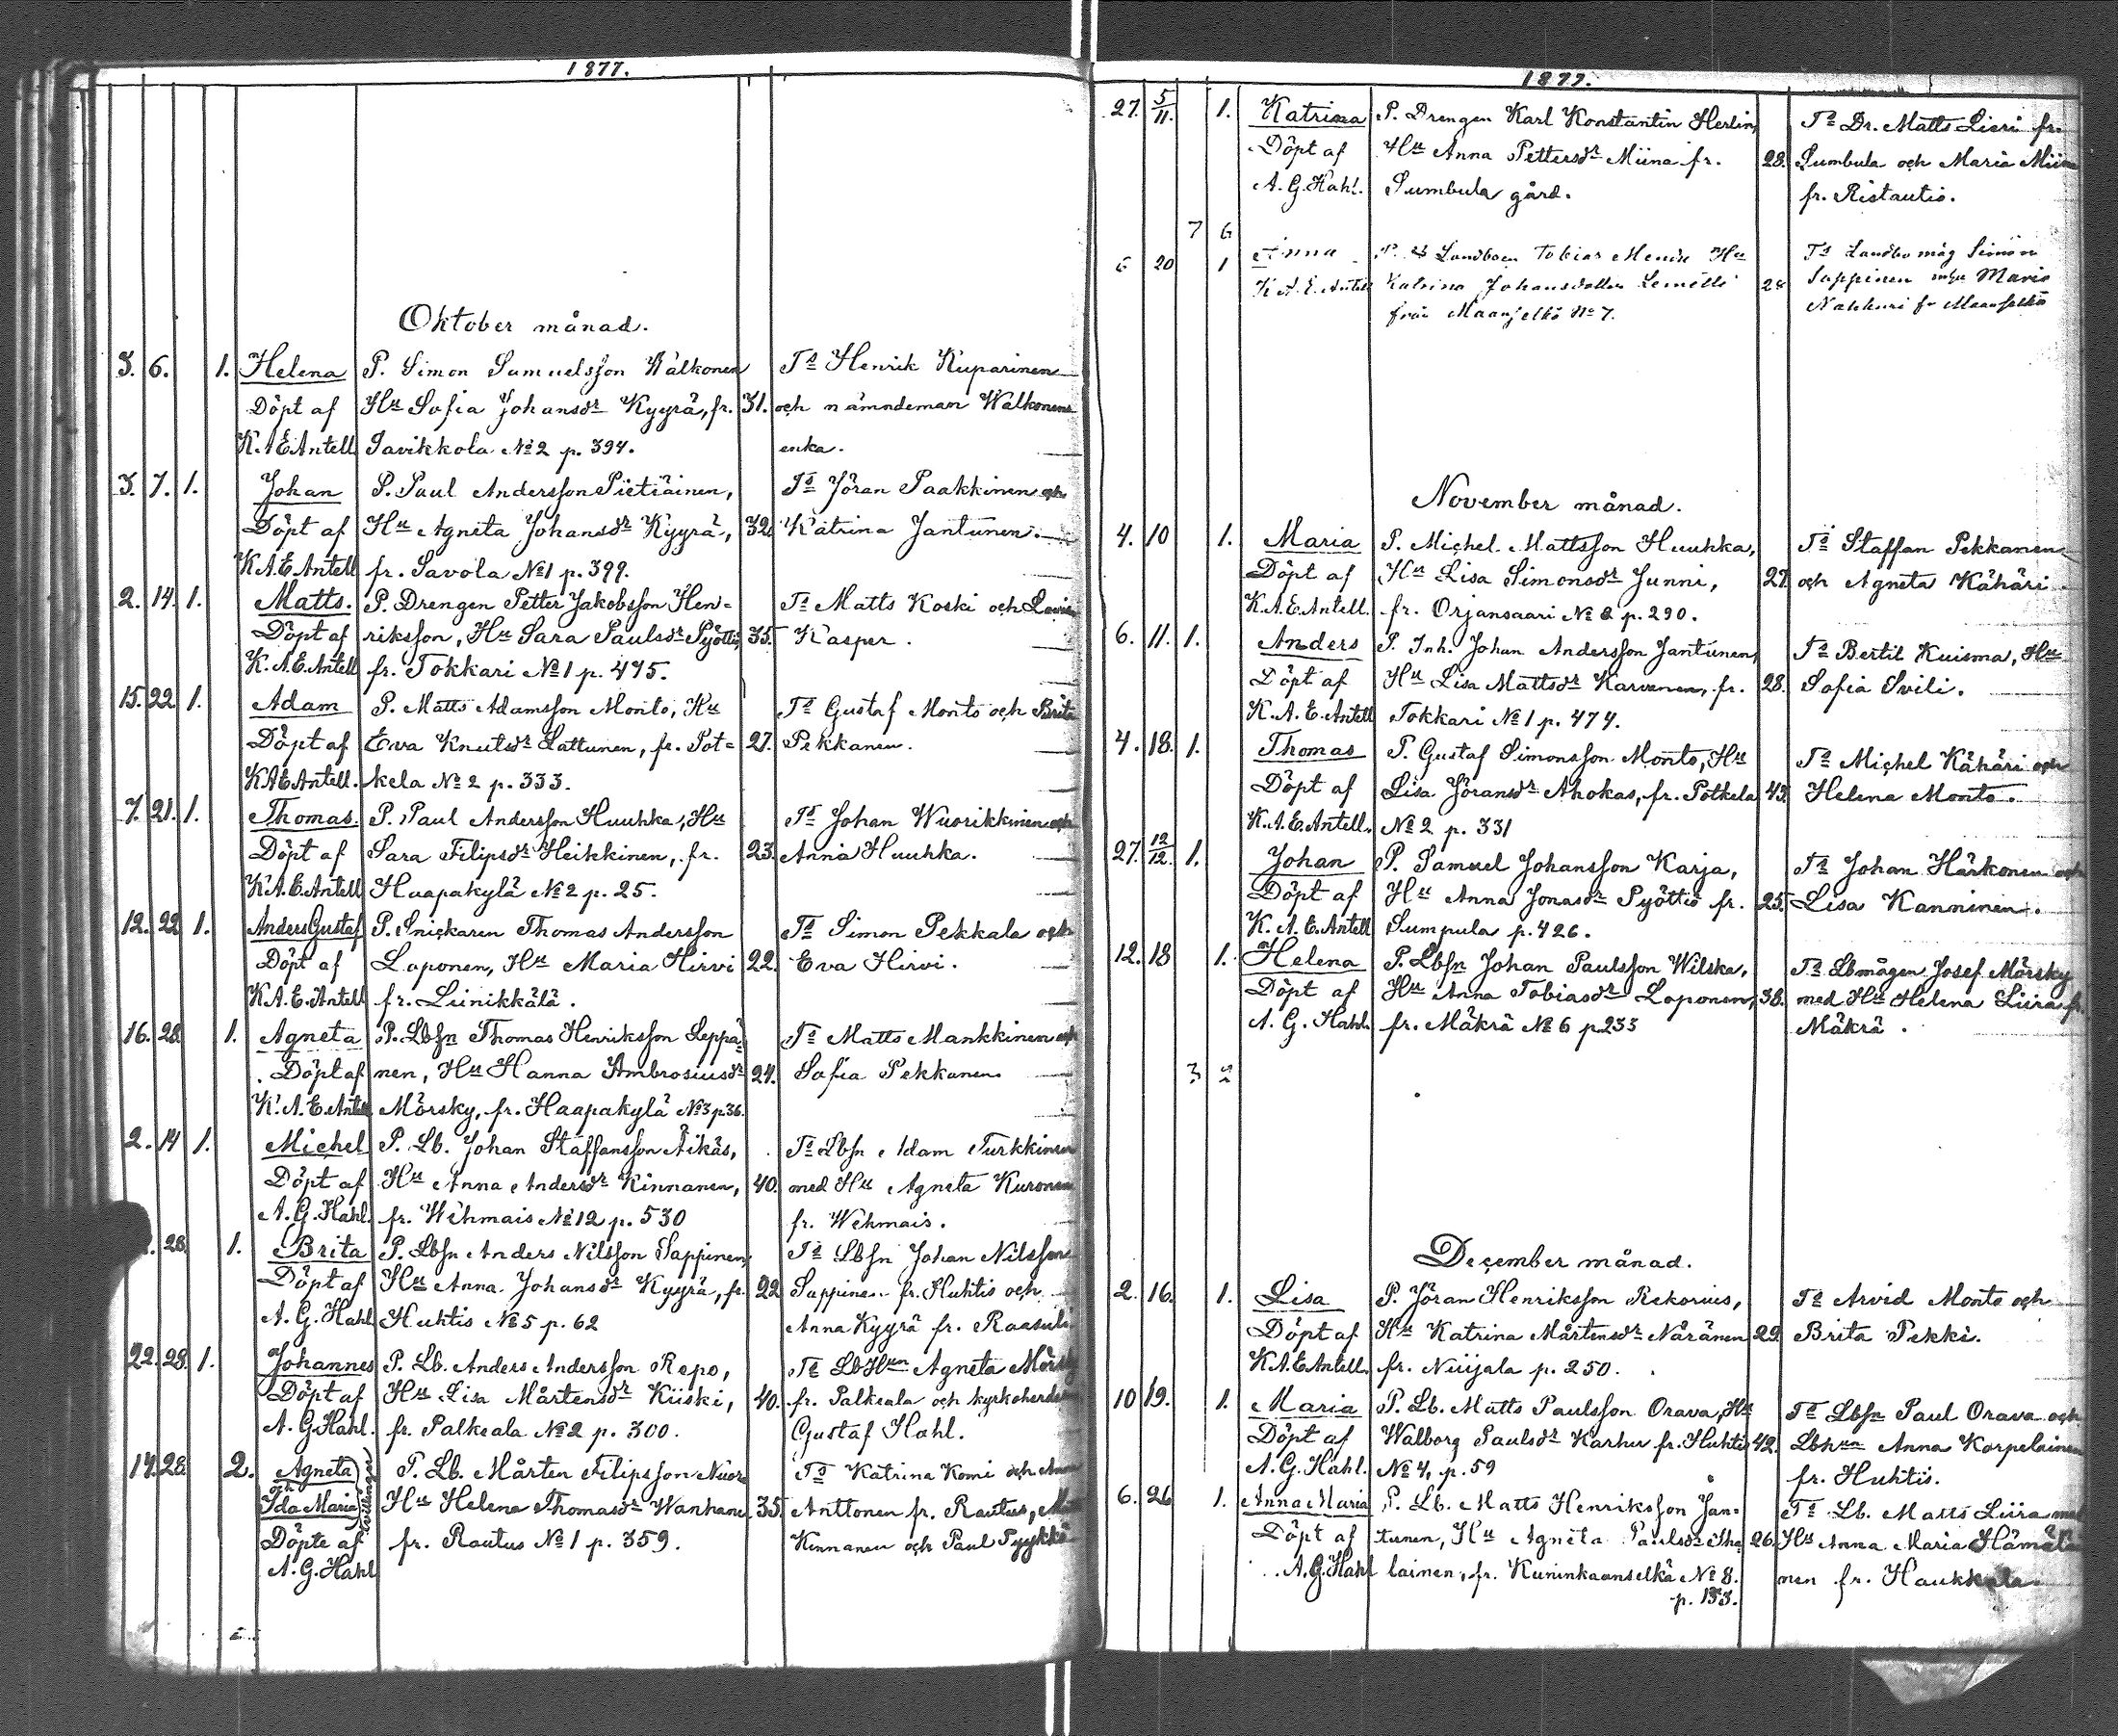 1877.
Oktober månad.
3. 6. 1. Helena P. Simon Samuelsson Wälkonen Ts Henrik Kuparinen
Döpt af Hu Sofia Johansdr Kyyrä, fr. 31. och nämndeman Walkonens
K.A.E.Antell Savikkola No 2 p. 394. enka.
3. 7. 1. Johan P. Paul Andersson Pietiäinen, Ts Jöran Paakkinen och
Döpt af Hu Agneta Johansdr Kyyrä, 32. Katrina Jantunen.
K.A.E.Antell fr. Savola No 1 p. 399.
2. 14. 1. Matts. P. Drengen Petter Jakobsson Hen- Ts Matts Koski och Lovisa
Döpt af riksson, Hu Sara Paulsdr Pyöttiö, 35. Kasper.
K.A.E.Antell fr. Tokkari No 1 p. 475.
15. 22. 1. Adam P. Matts Adamsson Monto, Hu Ts Gustaf Monto och Brita
Döpt af Eva Knutsdr Lattunen, fr. Pot- 27. Pekkanen.
K.A.E.Antell. kela No 2 p. 333.
7. 21. 1. Thomas. P. Paul Andersson Huuhka, Hu Ts Johan Wuorikkinen och
Döpt af Sara Filipsdr Heikkinen, fr. 23. Anna Huuhka.
K.A.E.Antell Haapakylä No 2 p. 25.
12. 22. 1. Anders Gustaf P. Snickaren Thomas Andersson Ts Simon Pekkala och
Döpt af Loponen, Hu Maria Hirvi 22. Eva Hirvi.
K.A.E.Antell fr. Leinikkälä.
16. 28. 1. Agneta P. Lbsn Thomas Henriksson Leppä- Ts Matts Mankkinen och
Döpt af nen, Hu Hanna Ambrosiusdr 24. Sofia Pekkanen.
K.A.E.Antell Mörsky, fr. Haapakylä No 3 p 36.
2. 14 1. Michel P. Lb. Johan Staffansson Äikäs, Ts Lbsn Adam Turkkinen
Döpt af Hu Anna Andersdr Kinnanen, 40. med Hu Agneta Kuronen
A.G.Hahl. fr. Wehmais No 12 p. 530 fr. Wehmais.
28. 1. Brita P. Lbsn Anders Nilsson Sappinen, Ts Lbsn Johan Nilsson
Döpt af Hu Anna Johansdr Kyyrä, fr. 22 Sappinen fr. Huhtis och
A.G.Hahl Huhtis No 5 p. 62 Anna Kyyrä fr. Raasuli
22. 28. 1. Johannes P. Lb. Anders Andersson Repo, Ts Lb Hun Agneta Mörsky
Döpt af Hu Lisa Mårtensdr Kiiski, 40. fr. Palkeala och kyrkoherden
A.G.Hahl. fr. Palkeala No 2 p. 300. Gustaf Hahl.
14. 28. 2. Agneta P. Lb. Mårten Filipsson Ts Katrina Komi och
och Ida Maria (tvillingar) Hu Helena Thomasdr Wanhanen 35. Anttonen fr. Rautus,
Döpte af fr. Rautus No 1 p. 359. Kinnanen och Paul Pyykkö
A.G.Hahl
1877.
27. 5/11. 1. Katrina P. Drengen Karl Konstantin Herlin, Ts Dr. Matts Lieri fr.
Döpt af Hu Anna Pettersdr Miina fr. 28. Sumbula och Maria Miina
A.G.Hahl. Sumbula gård. fr. Ristautio.
7 6
6 20 1 Anna P. Landboen Tobias Hu Ts Landbo måg Simon
K.A.E.Antell Katrina Johansdotter Lemetti 28 Sappinen Maria
från Maanselkä No 7. Nakkuri fr Maanselkä
November månad.
4. 10 1. Maria P. Michel Mattsson Huuhka, Ts Staffan Pekkanen
Döpt af Hu Lisa Simonsdr Junni, 27. och Agneta Kähäri
K.A.E.Antell. fr. Orjansaari No 2 p. 290.
6. 11. 1. Anders P. Inh. Johan Andersson Jantunen, Ts Bertil Kuisma, Hu
Döpt af Hu Lisa Mattsdr Karvanen, fr. 28. Sofia Svili.
K.A.E.Antell Tokkari No 1 p. 474.
4. 18. 1. Thomas P. Gustaf Simonsson Monto, Hu Ts Michel Kähäri och
Döpt af Lisa Jöransdr Ahokas, fr. Potkela 43. Helena Monto.
K.A.E.Antell. No 2 p. 331
27. 12/12. 1. Johan P. Samuel Johansson Karja, Ts Johan Härkonen och
Döpt af Hu Anna Jonasdr Pyöttiö fr. 25. Lisa Kanninen.
K.A.E.Antell Sumpula p. 426.
12. 18 1. Helena P. Lbsn Johan Paulsson Wilska, Ts Lbmågen Josef Mörsky
Döpt af Hu Anna Tobiasdr Loponen, 38. med Hu Helena Liira fr.
A.G.Hahl. fr. Mäkrä No 6 p. 233 Mäkrä.
3 2
December månad.
2. 16. 1. Lisa P. Jöran Henriksson Rekorius, Ts Arvid Monto och
Döpt af Hu Katrina Mårtensdr Näränen 29. Brita Pekki.
K.A.E.Antell. fr. Niisjala p. 250.
10 19. 1. Maria P. Lb. Matts Paulsson Orava, Hu Ts Lbsn Paul Orava och
Döpt af Walborg Paulsdr Karhu fr. Huhtis 42. Lbhun Anna Korpelainen
A.G.Hahl. No 4, p. 59 fr. Huhtis.
6. 26 1. Anna Maria P. Lb. Matts Henriksson Jan- Ts Lb. Matts Liira med
Döpt af tunen, Hu Agneta Paulsdr Iha- 26. Hu Anna Maria Hämäläi
A.G.Hahl lainen, fr. Kuninkaanselkä No 8. nen fr. Haukkala.
p. 153.